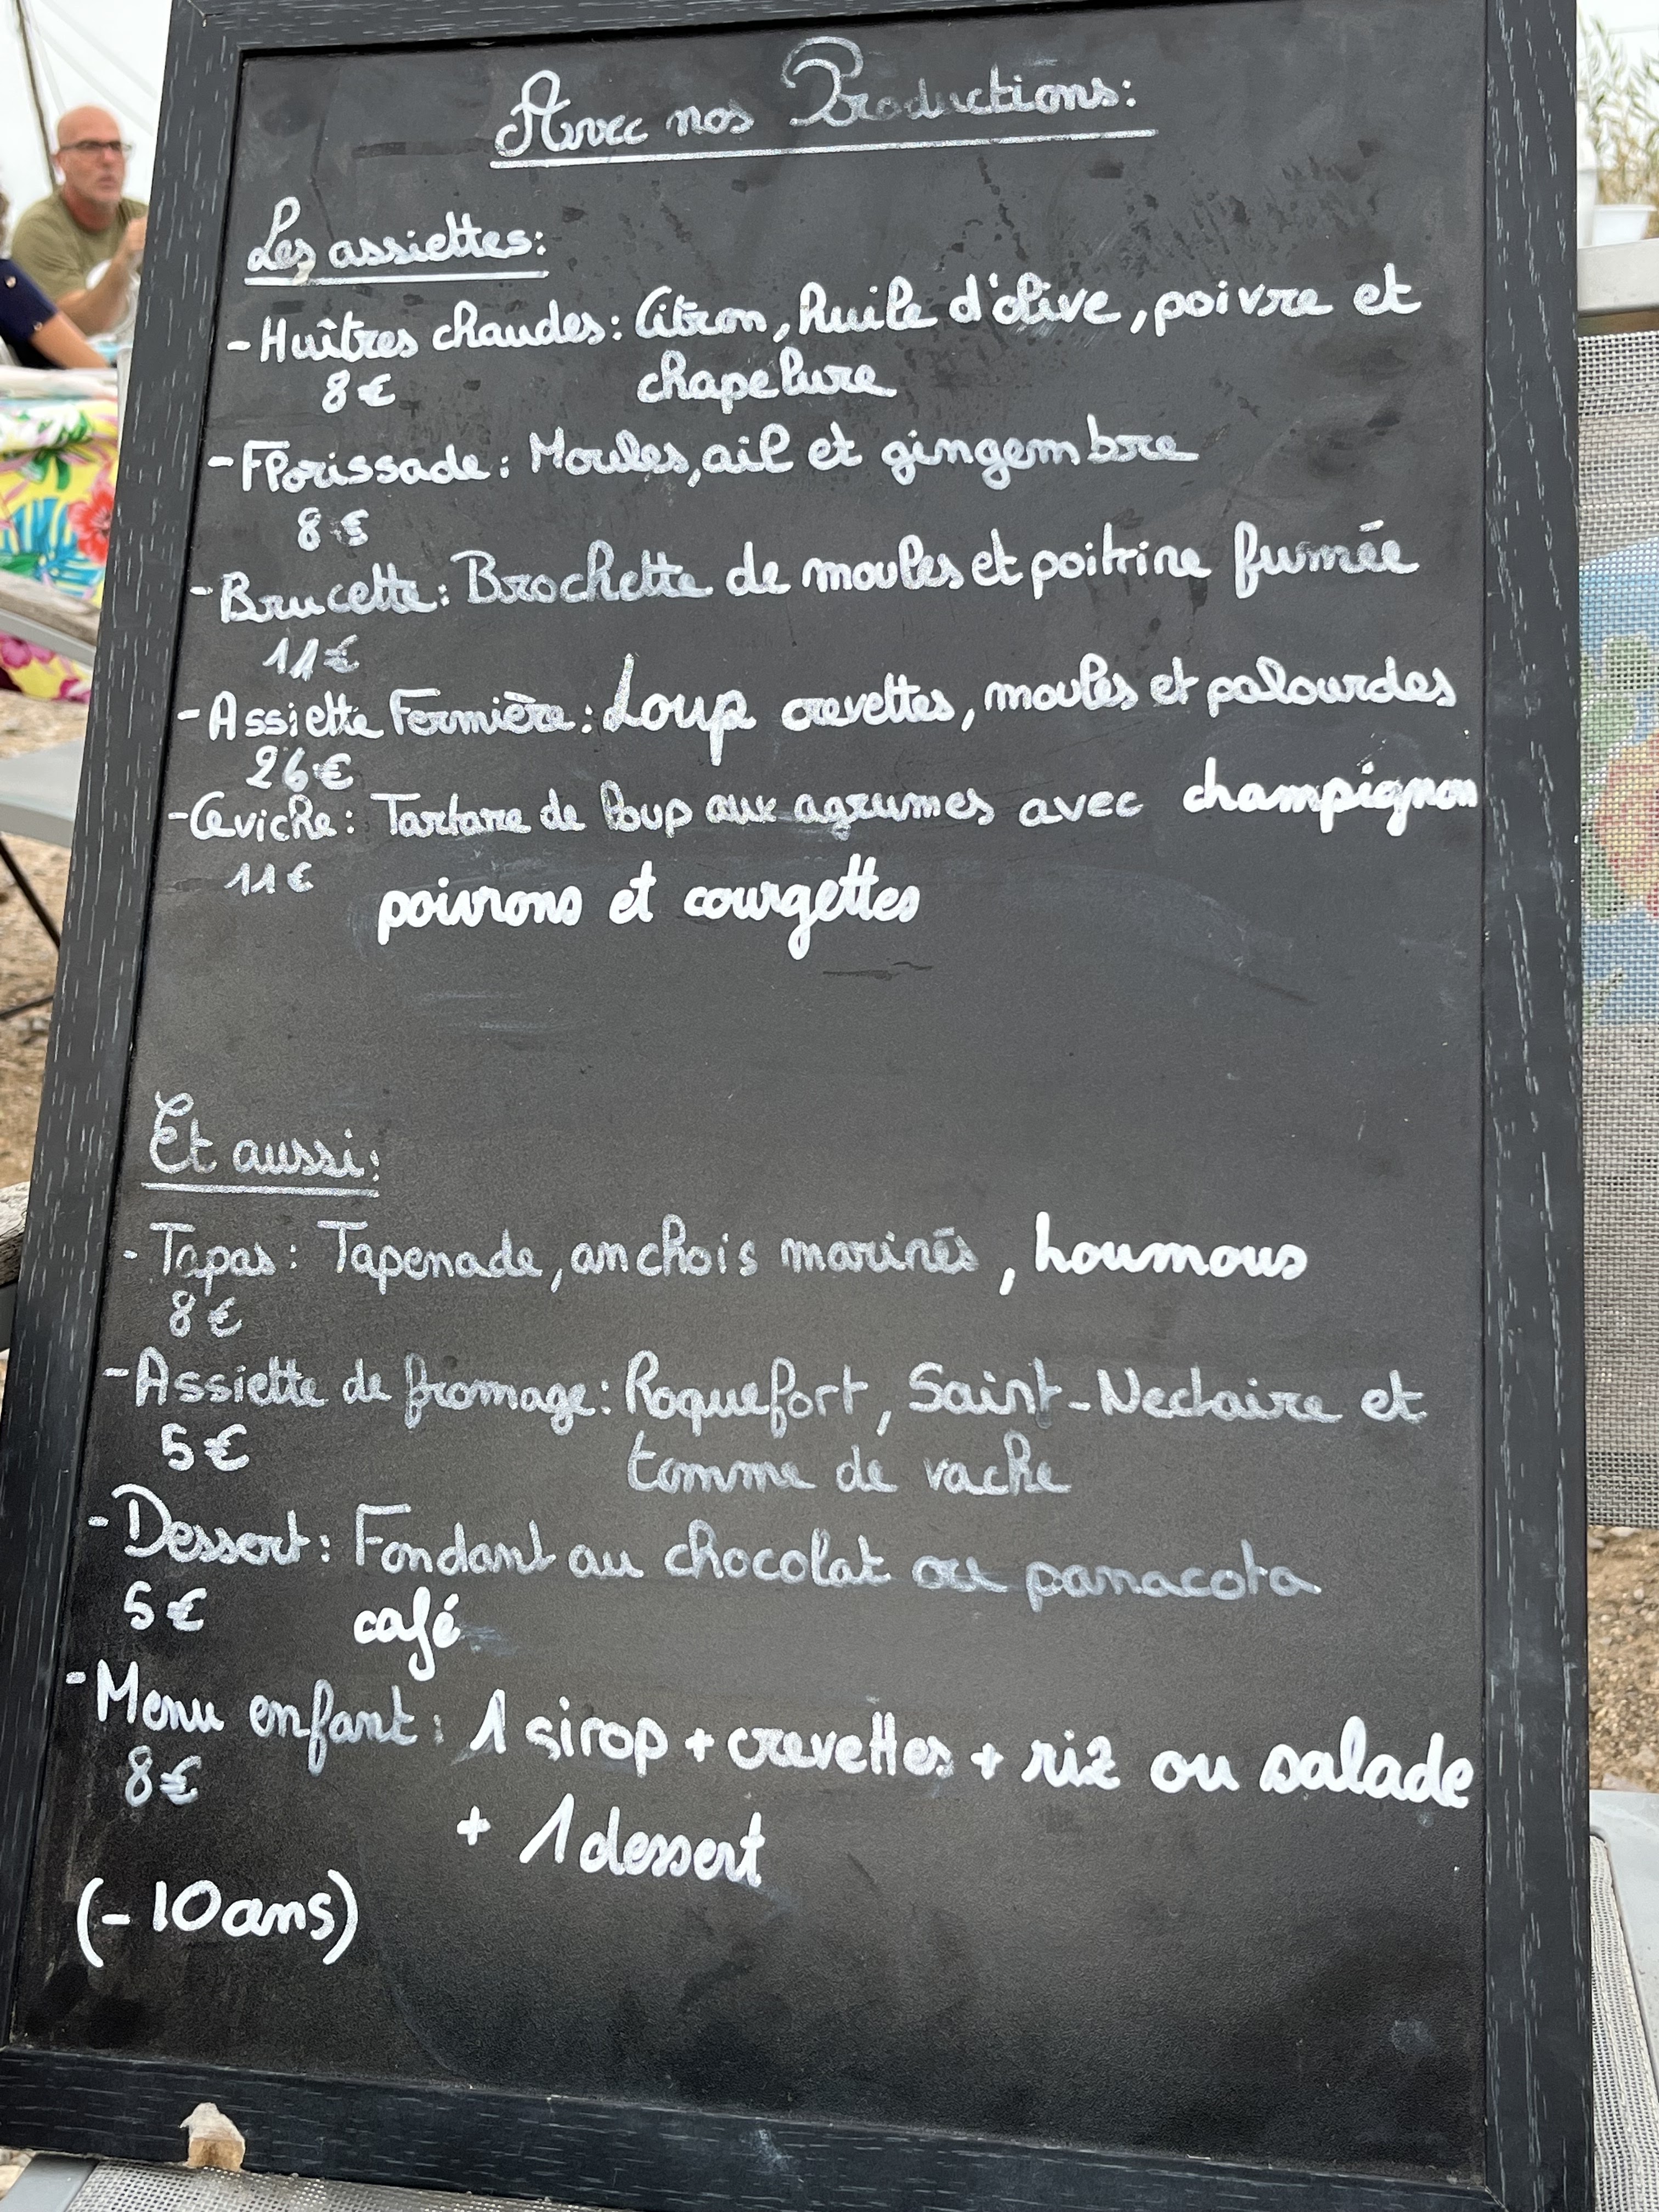 Avec nos Productions:
Les assiettes:
-Huîtres chaudes: Citron, huile d'olive, poivre et
8€ chapelure
-Florissade: Moules, ail et gingembre
8€
-Brucette: Brochette de moules et poitrine fumée
11€
-Assiette Fermière: Loup crevettes, moules et palourdes
26€
-Ceviche: Tartare de loup aux agrumes avec champignon
11€ poivrons et courgettes
Et aussi:
-Tapas: Tapenade, anchois marinés, houmous
8€
-Assiette de fromage: Roquefort, Saint-Nectaire et
5€ tomme de vache
-Dessert: Fondant au chocolat ou panacota
5€ café
-Menu enfant: 1 sirop + crevettes + riz ou salade
8€ + 1 dessert
(-10ans)